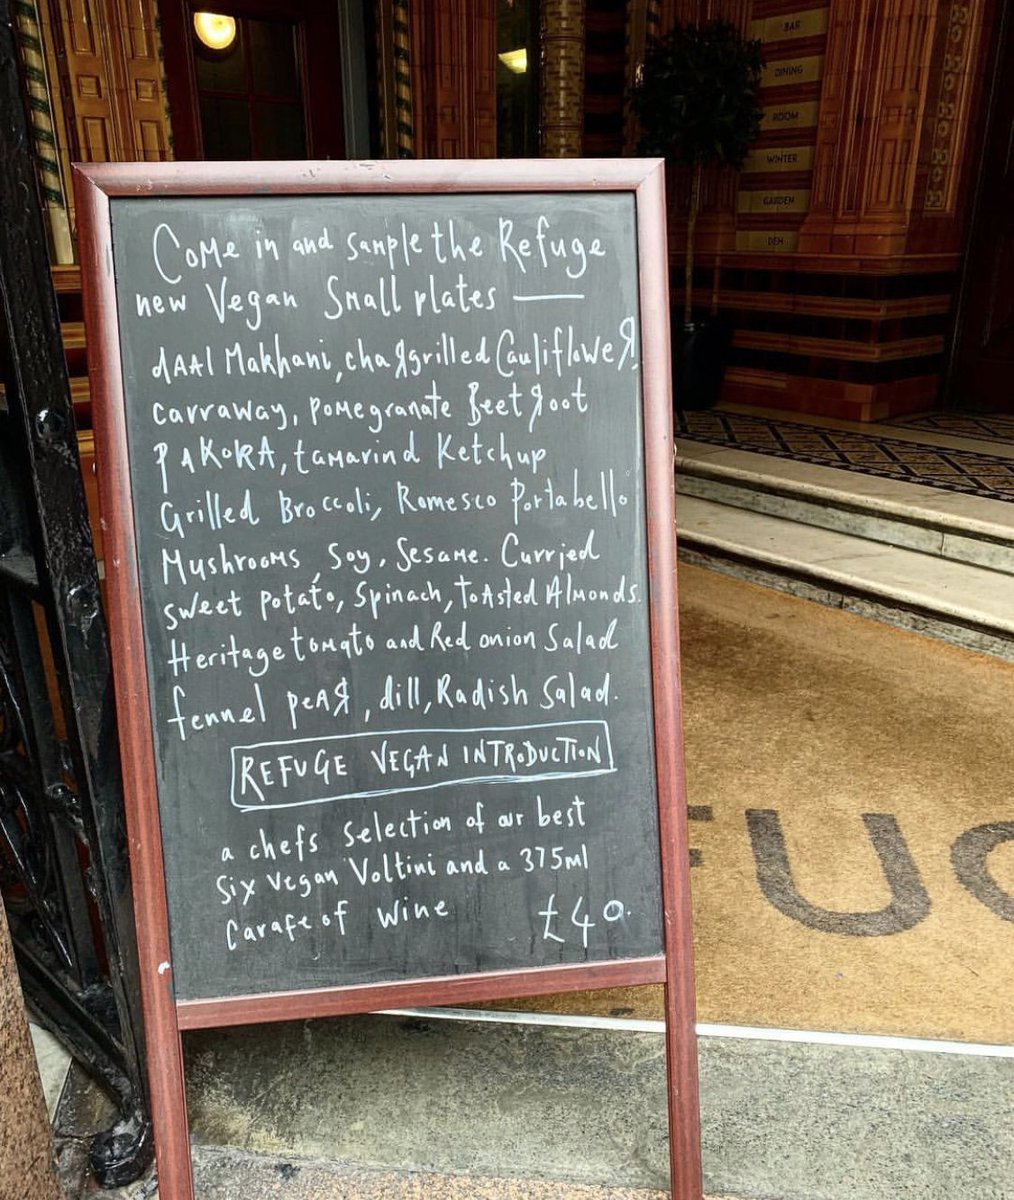 BAR
DINING
ROOM
WINTER
GARDEN
DEN
Come in and sample the Refuge
new Vegan Small plates —
dAAl Makhani, chaЯgrilled CaulifloweЯ,
carraway, pomegranate BeetЯoot
PAKORA, tamarind Ketchup
Grilled Broccoli, Romesco Portabello
Mushrooms, Soy, Sesame. Curried
sweet potato, Spinach, ToAsted Almonds.
Heritage tomato and Red onion Salad
fennel peAЯ, dill, Radish Salad.
REFUGE VEGAN INTRODUCTION
a chefs Selection of our best
Six Vegan Voltini and a 375ml
Carafe of Wine £40.
FUG